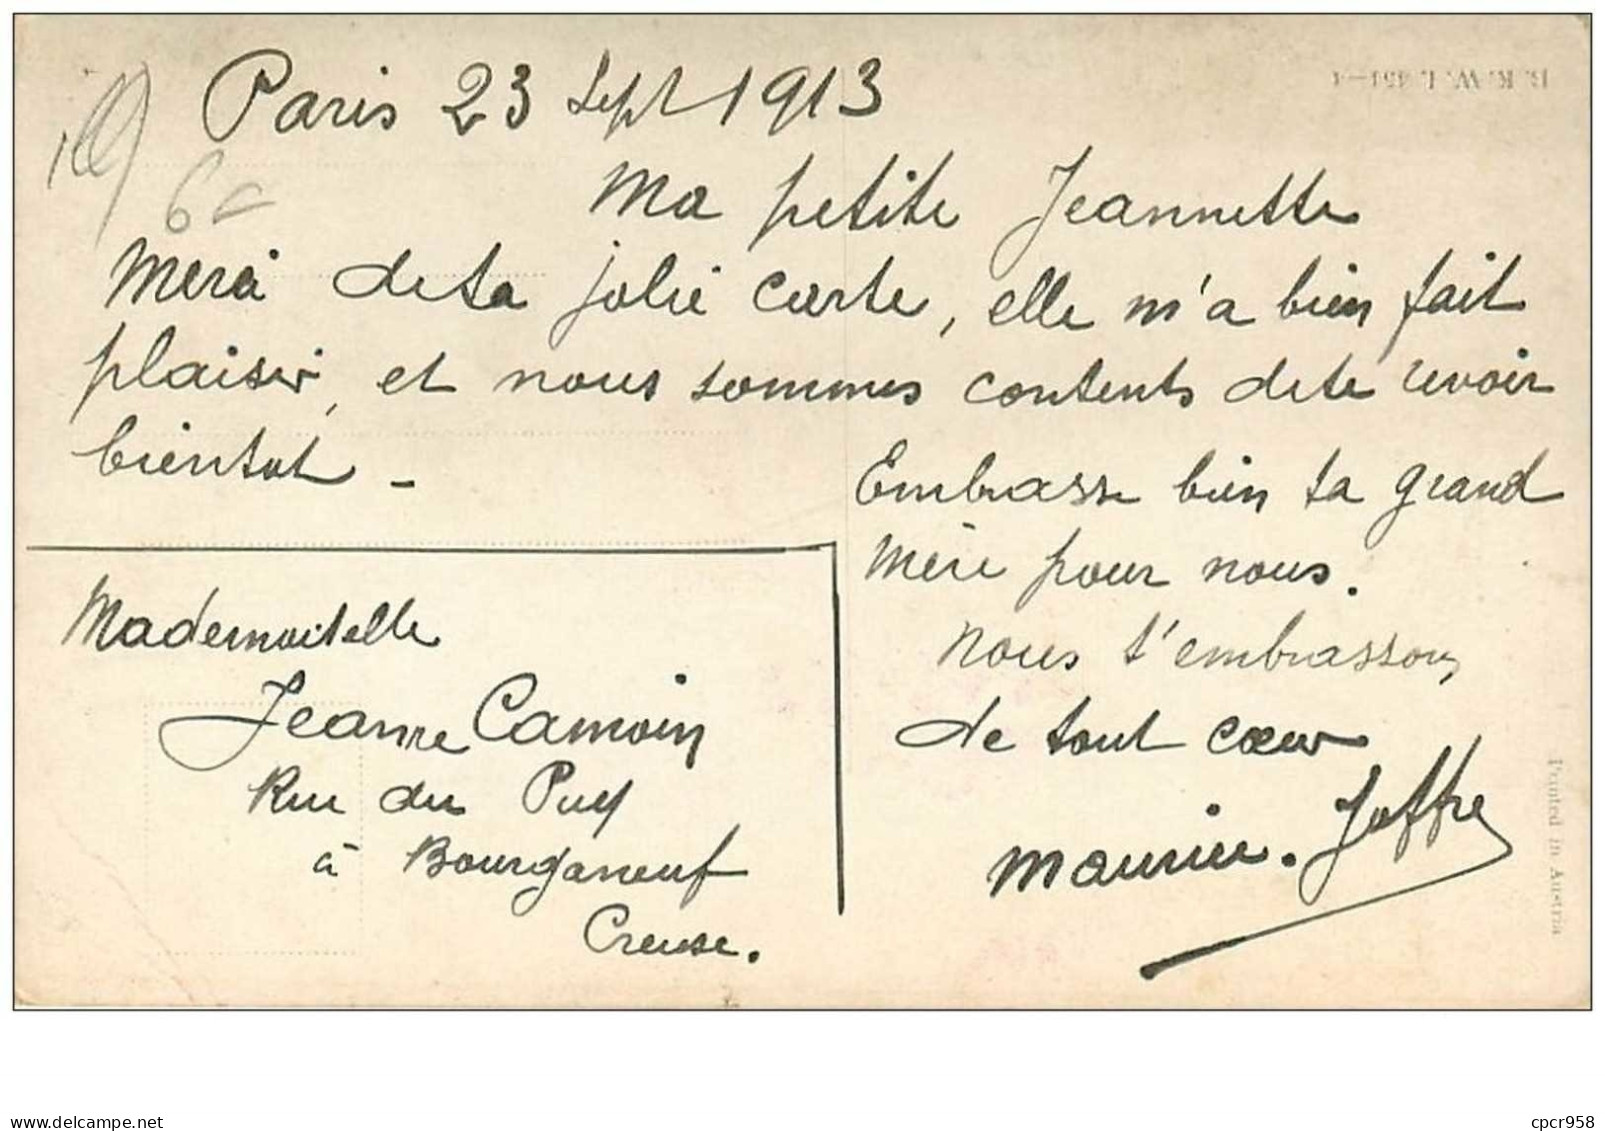 Paris 23 Sept 1913
Ma petite Jeannette
Merci de ta jolie carte, elle m'a bien fait
plaisir, et nous sommes contents de te revoir
bientot -
Embrasse bien ta grand
mère pour nous.
Nous t'embrassons
de tout cœur
Maurice. Joffre
Mademoiselle
Jeanne Camoin
Rue du Puy
à Bourganeuf
Creuse.
6c
B. K. W. I. 451-4
Printed in Austria
www.delcampe.net
cpcr958